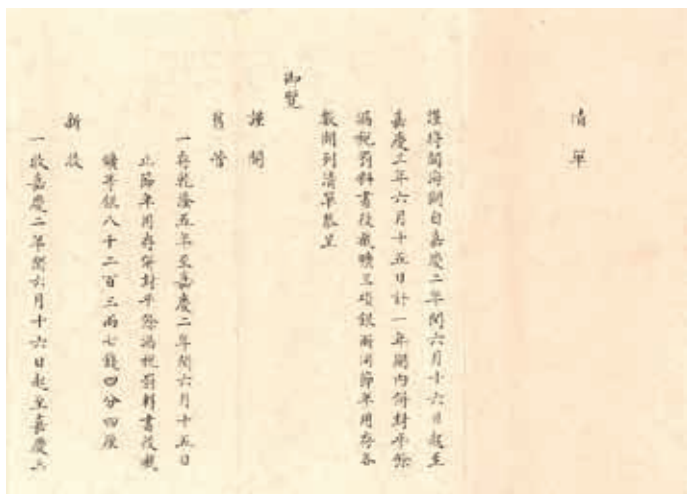 清單
謹將閩海關自嘉慶二年閏六月十六日起至
嘉慶三年六月十五日計一年期內併封平餘
漏稅罰料書役截曠三項銀兩同節年用存各
數開列清單恭呈
御覽
謹開
舊管
一存乾隆五年至嘉慶二年閏六月十五日
止節年用存併封平餘漏稅罰料書役截
曠等銀八千二百三兩七錢四分四厘
新收
一收嘉慶二年閏六月十六日起至嘉慶三